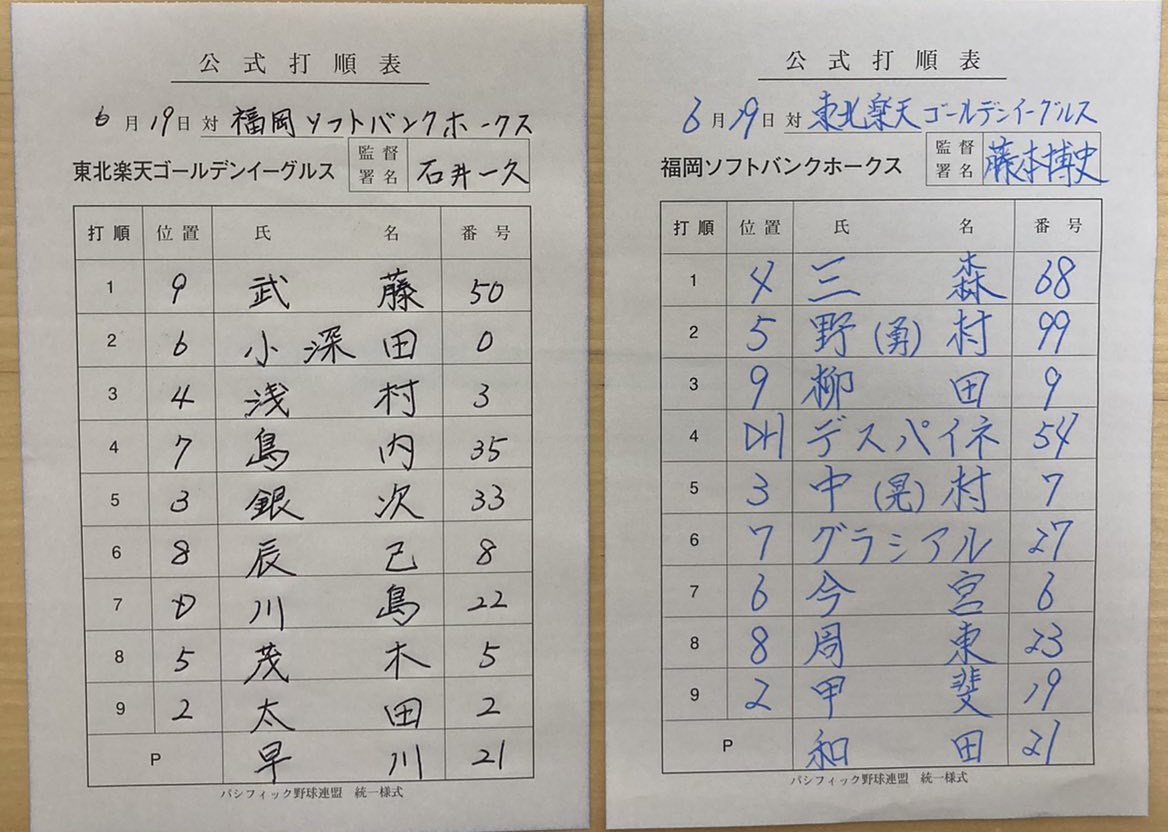 公式打順表
6月19日 対 福岡ソフトバンクホークス
東北楽天ゴールデンイーグルス 監督署名 石井一久
打順 位置 氏名 番号
1 9 武藤 50
2 6 小深田 0
3 4 浅村 3
4 7 島内 35
5 3 銀次 33
6 8 辰己 8
7 D 川島 22
8 5 茂木 5
9 2 太田 2
P 早川 21
パシフィック野球連盟 統一様式
公式打順表
6月19日 対 東北楽天ゴールデンイーグルス
福岡ソフトバンクホークス 監督署名 藤本博史
打順 位置 氏名 番号
1 4 三森 68
2 5 野(勇)村 99
3 9 柳田 9
4 DH デスパイネ 54
5 3 中(晃)村 7
6 7 グラシアル 27
7 6 今宮 6
8 8 周東 23
9 2 甲斐 19
P 和田 21
パシフィック野球連盟 統一様式